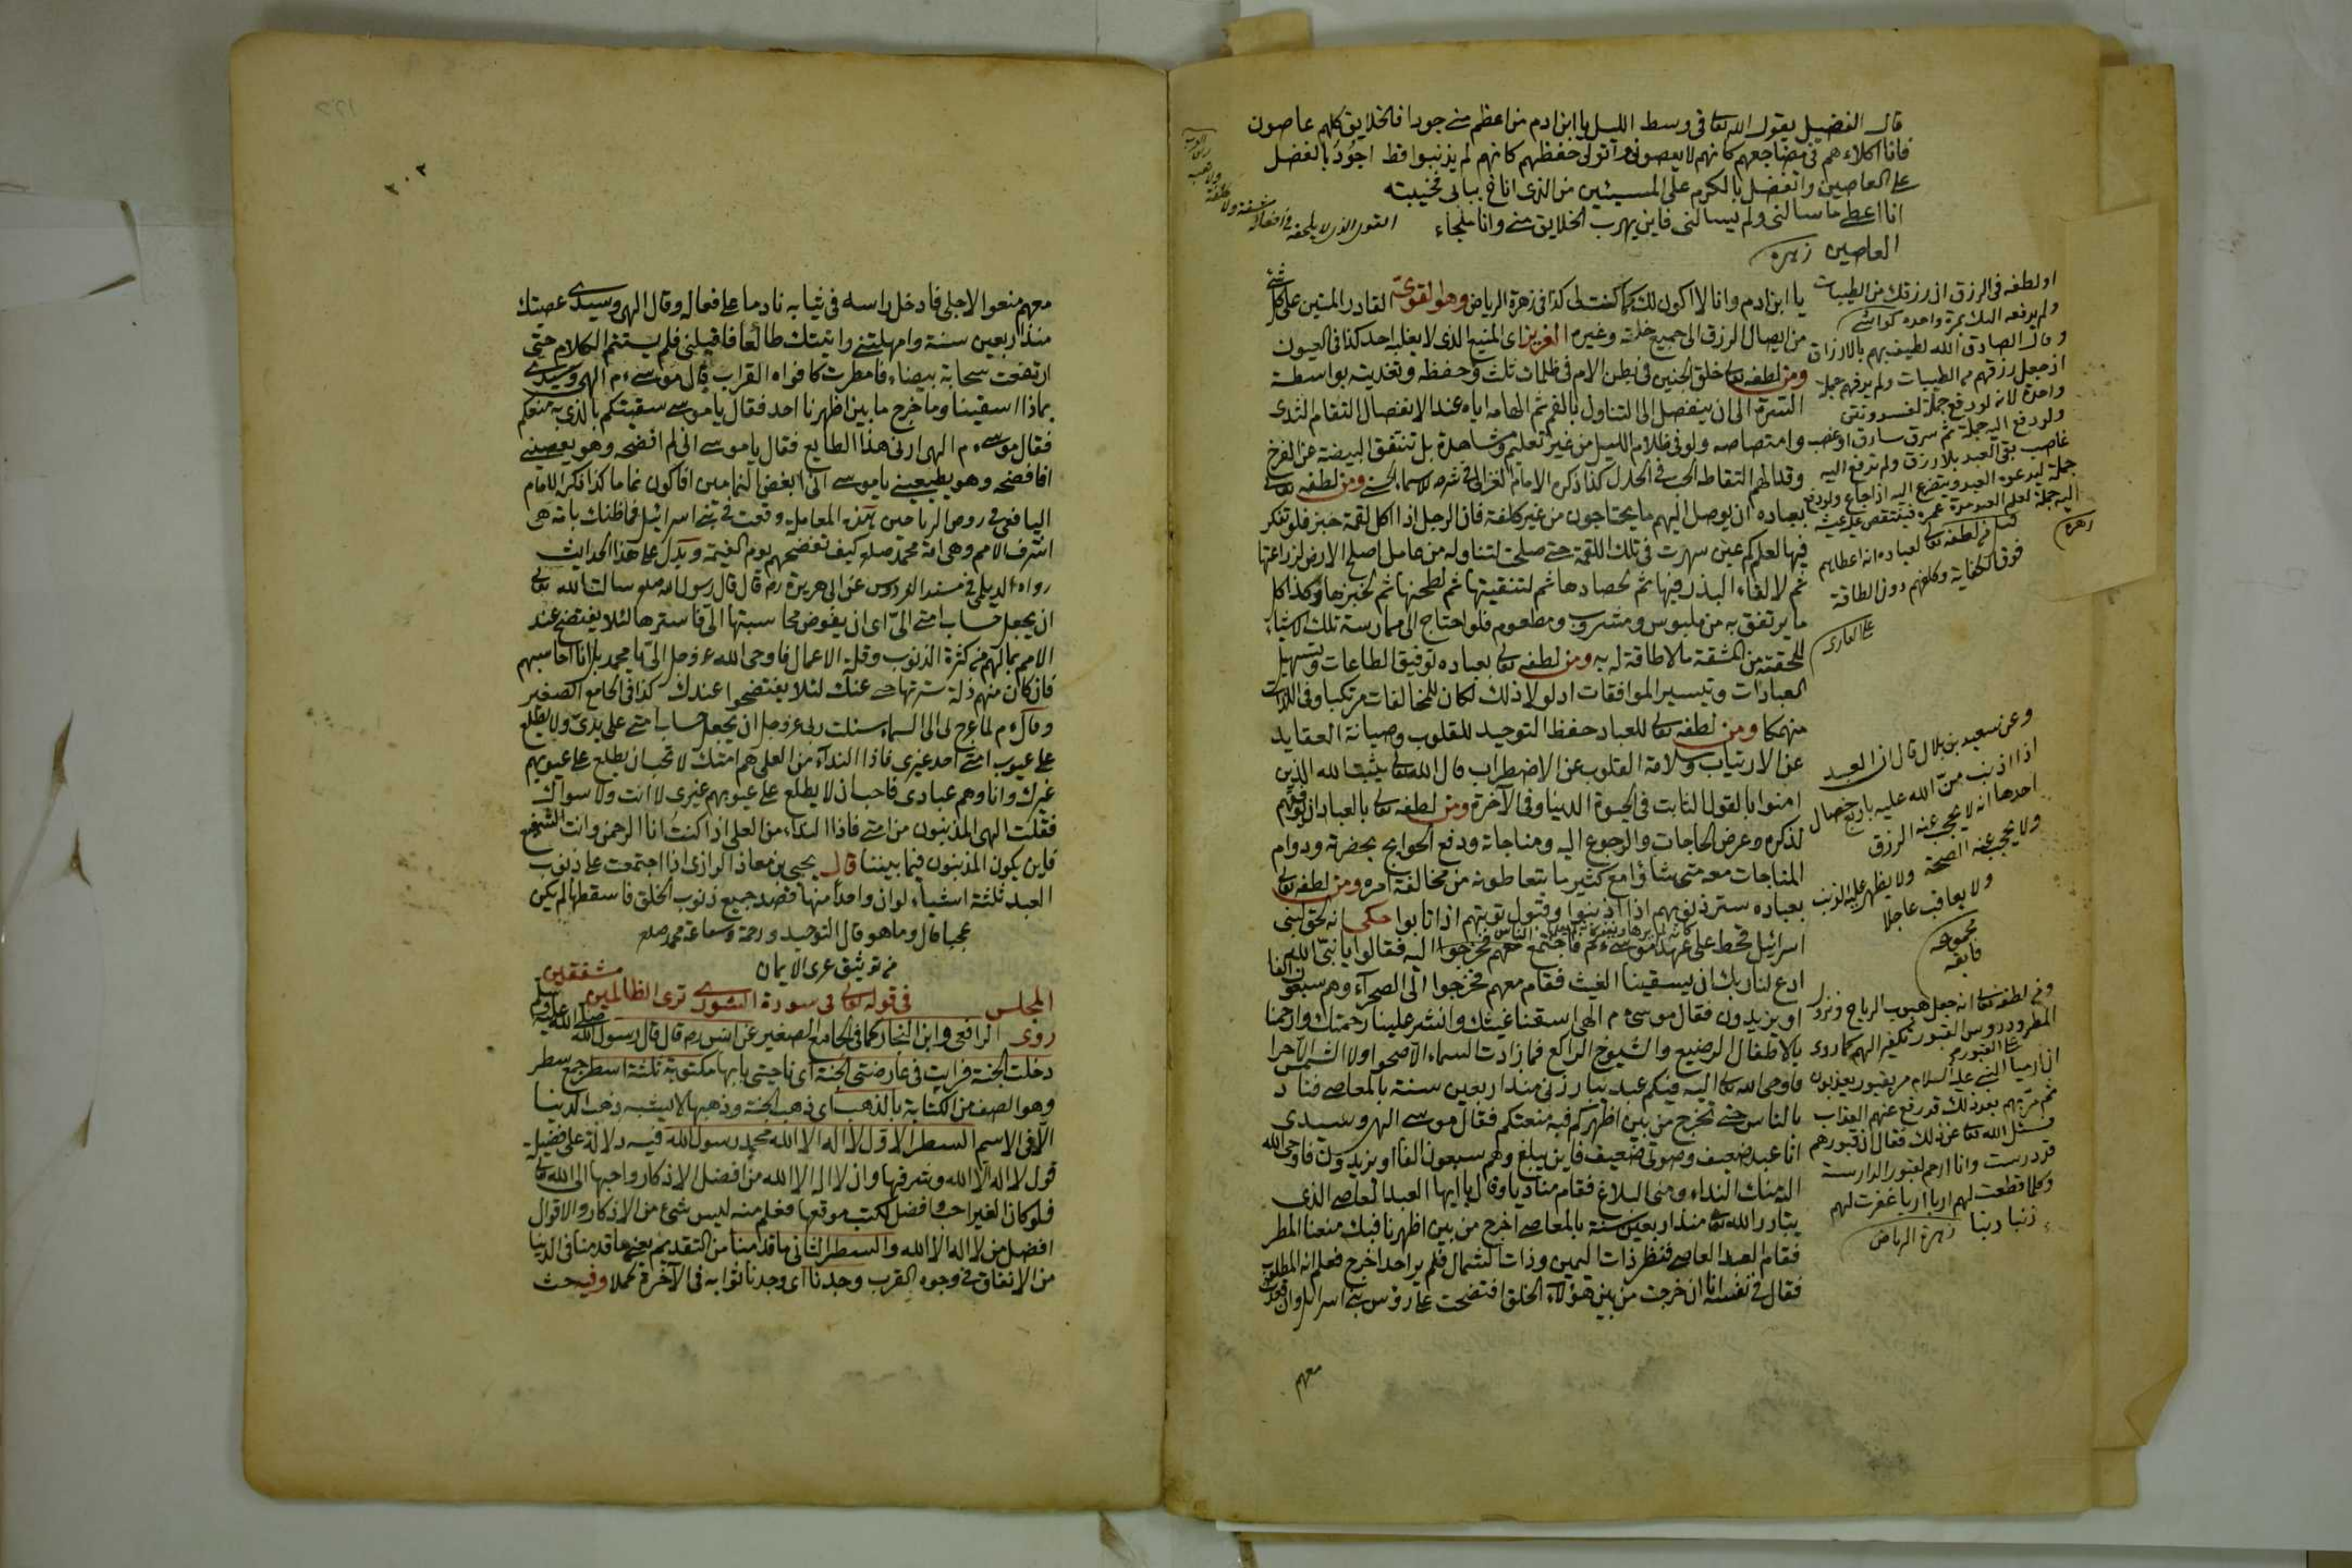 قال الفضيل يقول الله تعا فى وسط الليل يا ابن ادم من اعظم منى جودا فالخلايق كلهم عاصون
فانا اكلاءهم فى مضاجعهم كانهم لا يعصونى واتولى حفظهم كانهم لم يذنبوا قط اجود بالفضل
على العاصين واتفضل بالكرم على المسيئين من الذى اناخ ببابى فخيبته
انا اعطى ما سالنى ولم يسالنى فاين يهرب الخلايق منى وانا ملجاء
العاصين زهره
القوى الذى لا يلحقه فى افعاله مشقة ولا
يا ابن ادم وانا لا اكون لك كما كنت لى كذا فى زهرة الرياض وهو القوى القادر المتين على كل شئ
من ايصال الرزق الى جميع خلقه وغيره العزيز اى المنيع الذى لا يغلبه احد كذا فى العيون
ومن لطفه تعا خلق الجنين فى بطن الام فى ظلمات ثلث وحفظه وتغذيته بواسطة
السرة الى ان ينفصل الى التناول بالفم ثم الهامه اياه عند الانفصال التقام الثدى
وامتصاصه ولو فى ظلام الليل من غير تعليم ومشاهدة بل تنفقق البيضة عن الفرخ
وقد الهم التقاط الحب فى الحال كذا ذكره الامام الغزالى فى شرح الاسماء الحسنى ومن لطفه تعالى
بعباده ان يوصل اليهم ما يحتاجون من غير كلفة فان الرجل اذا اكل لقمة خبز فلو تفكر
فيها لعلم كم عين سهرت فى تلك اللقمة حتى صلحت لتناوله من عامل اصلح الارض لزراعتها
ثم لالقاء البذر فيها ثم لحصادها ثم لتنقيتها ثم لطحنها ثم لخبزها وكذا كل
ما يرتفق به من ملبوس ومشروب ومطعوم فلو احتاج الى ممارسة تلك الاشياء
للحقته من المشقة ما لا طاقة له به ومن لطفه تعالى بعباده توفيق الطاعات وتسهيل
العبادات وتيسير الموافقات اذ لولا ذلك لكان للمخالفات مرتكبا وفى اللذات
منهمكا ومن لطفه تعالى للعباد حفظ التوحيد للقلوب وصيانة العقايد
عن الارتياب وسلامة القلوب عن الاضطراب قال الله تعالى يثبت الله الذين
امنوا بالقول الثابت فى الحيوة الدنيا وفى الآخرة ومن لطفه تعالى بالعباد ان
لذكره وعرض الحاجات والرجوع اليه ومناجاته ودفع الحوايج بحضرته ودوام
المناجات معه متى شاؤا مع كثير ما يتعاطونه من مخالفة امره ومن لطفه تعالى
بعباده ستر ذنوبهم اذا اذنبوا وقبول توبتهم اذا تابوا حكى انه لحق بنى
اسرائيل قحط على عهد موسى عم فاجتمع الناس فخرجوا اليه فقالوا يا نبى الله
ادع لنا ربك ان يسقينا الغيث فقام معهم فخرجوا الى الصحراء وهم سبعون الفا
او يزيدون فقال موسى م الهى اسقنا غيثك وانشر علينا رحمتك وارحمنا
بالاطفال الرضيع والشيوخ الراكع فما زادت السماء الا صحوا ولا الشمس الا حرا
فاوحى الله تعالى اليه فيكم عبد يبارزنى منذ اربعين سنة بالمعاصى فناد
بالناس حتى تخرج من بين اظهركم فبه منعتكم فقال موسى الهى وسيدى
انا عبد ضعيف وصوتى ضعيف فاين يبلغ وهم سبعون الفا او يزيدون فاوحى الله
اليه منك النداء ومنى البلاغ فقام مناديا وقال يا ايها العبد العاصى الذى
يبارز الله تعا منذ اربعين سنة بالمعاصى اخرج من بين اظهرنا فبك منعنا المطر
فقام العبد العاصى فنظر ذات اليمين وذات الشمال فلم ير احدا خرج فعلم انه المطلوب
فقال فى نفسه انا ان خرجت من بين هؤلاء الخلق افتضحت على رؤس بنى اسرائيل وان قعدت
معهم
او لطفه فى الرزق ان رزقك من الطيبات
ولم يدفعه اليك بمرة واحدة كواشى
وقال الصادق الله لطيف بهم بالارزاق
اذ جعل رزقهم من الطيبات ولم يدفعهم جملة
واحدة لانه لو دفع جملة لفسد ونتن
ولو دفع اليه جملة ثم سرق سارق او غصب
غاصب بقى العبد بلا رزق ولم يدفع اليه
جملة ليدعوه العبد ويتضرع اليه اذا جاع ولو دفع
اليه جملة لعلم العبد مدة عمره فينتقص عليه عيشه
زهره
قيل من لطفه تعالى لعباده انه اعطاهم
فوق الكفاية وكلفهم دون الطاقة
على القارى
وعن سعيد بن بلال قال ان العبد
اذا اذنب من الله عليه باربع خصال
احدها انه لا يحجب عنه الرزق
ولا يحجب عنه الصحة ولا يظهر عليه الذنب
ولا يعاقب عاجلا
مجموعه
فايقه
ومن لطفه تعا انه جعل هبوب الرياح ونزول
المطر ودروس القبور تكفيرا لهم كما روى
ان ارميا النبى عليه السلام مر بقبور يعذبون
ثم مر بهم بعد ذلك قد رفع عنهم العذاب
فسئل الله تعا عن ذلك فقال ان قبورهم
قد درست وانا ارحم لقبور الدارسة
وكلما قطعت لهم اربا اربا غفرت لهم
ذنبا ذنبا زهرة الرياض
٢٠٣
معهم منعوا لاجلى فادخل راسه فى ثيابه نادما على فعاله وقال الهى وسيدى عصيتك
منذ اربعين سنة وامهلتنى واتيتك طائعا فاقبلنى فلم يستتم الكلام حتى
ارتفعت سحابة بيضاء فامطرت كافواه القراب قال موسى م الهى وسيدى
بماذا اسقيتنا وما خرج ما بين اظهرنا احد فقال يا موسى سقيتكم بالذى به منعتكم
فقال موسى م الهى ارنى هذا الطايع فقال يا موسى انى لم افضحه وهو يعصينى
افافضحه وهو يطيعنى يا موسى انى ابغض النمامين افاكون نماما كذا ذكره الامام
اليافعى فى روض الرياحين هذه المعاملة وقعت فى بنى اسرائيل فما ظنك بامة هى
اشرف الامم وهى امة محمد صلع كيف تفضحهم يوم القيمة ويدل على هذا الحديث
رواه الديلمى فى مسند الفردوس عن ابى هريرة رض قال قال رسول الله صلع سالت الله تعالى
ان يجعل حساب امتى الى اى ان يفوض محاسبتها الى فاسترها لئلا يفتضح عند
الامم بما لهم من كثرة الذنوب وقلة الاعمال فاوحى الله عز وجل الى يا محمد بل انا احاسبهم
فان كان منهم ذلة سترتها حتى عنك لئلا يفتضحوا عندك كذا فى الجامع الصغير
وقال م لما عرج لى الى السماء سئلت ربى عز وجل ان يجعل حساب امتى على يدى ولا يطلع
على عيوب امتى احد غيرى فاذا النداء من العلى هم امتك لا تحب ان يطلع على عيوبهم
غيرك وانا وهم عبادى فاحب ان لا يطلع على عيوبهم غيرى لا انت ولا سواك
فقلت الهى المذنبون من امتى فاذا النداء من العلى اذا كنت انا الرحمن وانت الشفيع
فاين يكون المذنبون فيما بيننا قال يحيى بن معاذ الرازى اذا اجتمعت على ذنوب
العبد ثلثة اشياء لو ان واحدا منها قصد جميع ذنوب الخلق فاسقطها لم يكن
عجبا قال وما هو قال التوحيد ورحمة وشفاعة محمد صلع
من توثيق عرى الايمان
المجلس فى قوله تعالى فى سورة الشورى ترى الظالمين مشفقين
روى الرافعى وابن النجار كما فى الجامع الصغير عن انس رض قال قال رسول الله صلى الله عليه وسلم
دخلت الجنة فرايت فى عارضتى الجنة اى ناحيتى بابها مكتوبة ثلثة اسطر جمع سطر
وهو الصف من الكتابة بالذهب اى ذهب الجنة وذهبها لا يشبه ذهب الدنيا
الا فى الاسم السطر الاول لا اله الا الله محمد رسول الله فيه دلالة على فضيلة
قول لا اله الا الله وشرفها وان لا اله الا الله من افضل الاذكار واحبها الى الله تعا
فلو كان الغير احب وافضل لكتب موقعها فعلم منه ليس شئ من الاذكار والاقوال
افضل من لا اله الا الله والسطر الثانى ما قدمنا من التقديم يعنى ما قدمنا فى الدنيا
من الانفاق فى وجوه القرب وجدنا اى وجدنا ثوابه فى الآخرة كملا وفيه حث